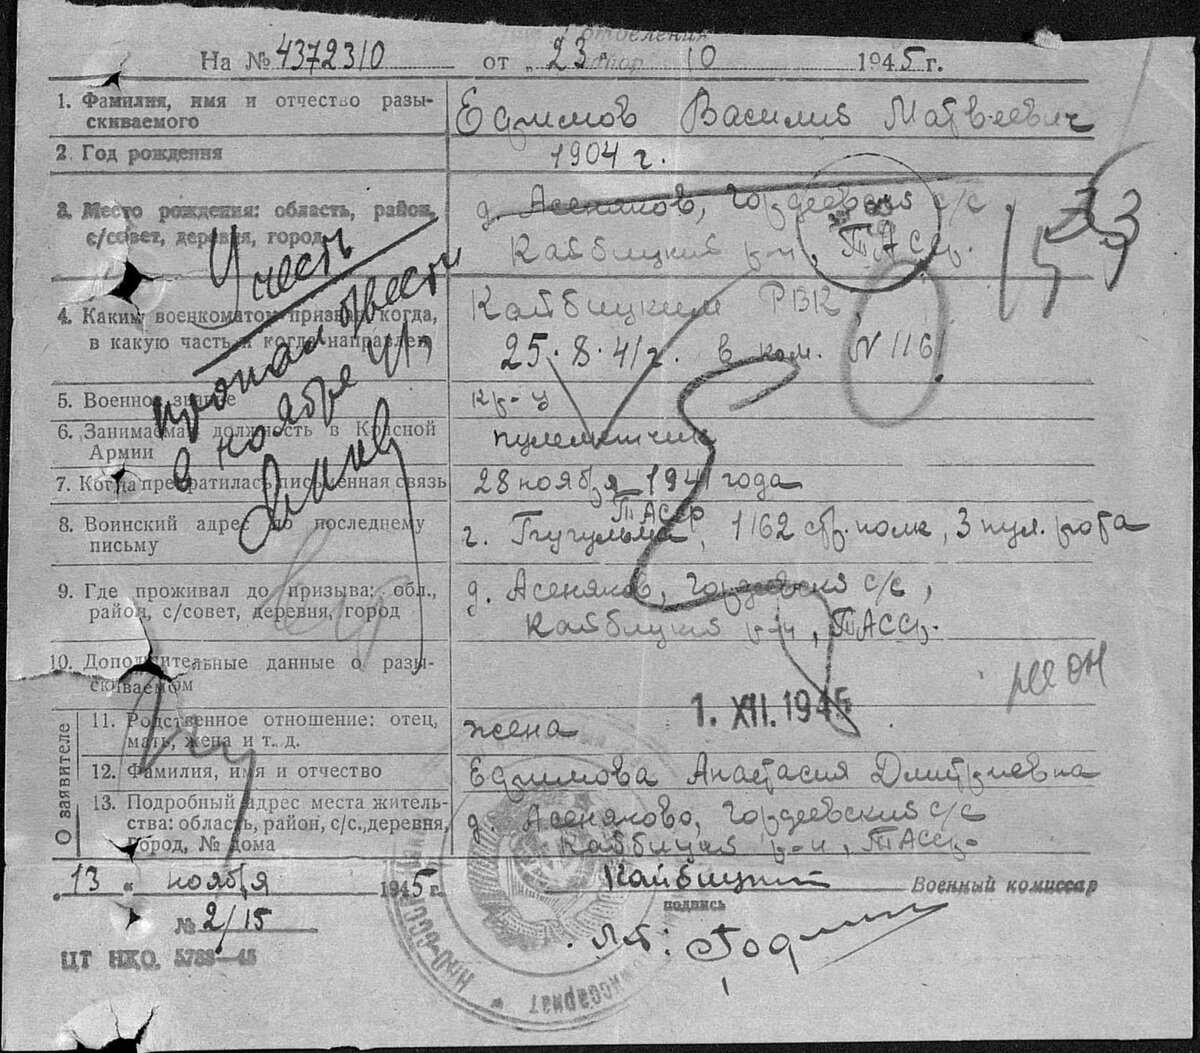 На № 4372310 от „ 23 10 1945 г.
1. Фамилия, имя и отчество разы-
скиваемого
Ефимов Василий Матвеевич
2. Год рождения
1904 г.
3. Место рождения: область, район,
с/совет, деревня, город
д. Асеняков, Гордеевский с/с
Кайбицкий р-н, ТАССР.
4. Каким военкоматом призван когда,
в какую часть и когда направлен
Кайбицким РВК
25.8.41 г. в ком. N 116
5. Военное звание
кр-ц
6. Занимаемая должность в Красной
Армии
пулеметчик
7. Когда прекратилась письменная связь
28 ноября 1941 года
8. Воинский адрес по последнему
письму
ТАССР
г. Бугульма, 1162 стр. полк, 3 пул. рота
9. Где проживал до призыва: обл.,
район, с/совет, деревня, город
д. Асеняков, Гордеевский с/с,
Кайбицкий р-н, ТАССР.
10. Дополнительные данные о разы-
скиваемом
1. XII. 1945
О заявителе
11. Родственное отношение: отец,
мать, жена и т. д.
жена
12. Фамилия, имя и отчество
Ефимова Анастасия Дмитриевна
13. Подробный адрес места житель-
ства: область, район, с/с., деревня,
город, № дома
д. Асеняково, Гордеевский с/с
Кайбицкий р-н, ТАССР.
„ 13 “ ноября 1945 г.
Кайбицкий Военный комиссар
подпись
№ 2/15
ЦТ НКО. 5788—45
Учесть
пропал без вести
в ноябре 41